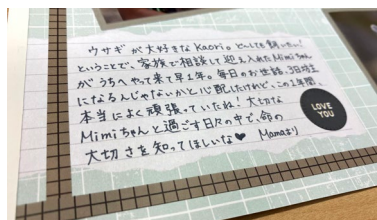 ウサギが大好きなKaori。どーしても飼いたい!
ということで、家族で相談して迎え入れたMimiちゃん
がうちへやって来て早1年。毎日のお世話、3日坊主
になるんじゃないかと心配したけれど、この1年間、
本当によく頑張っていたね!大切な
Mimiちゃんと過ごす日々の中で、命の
大切さを知ってほしいな♥ Mamaより
LOVE
YOU